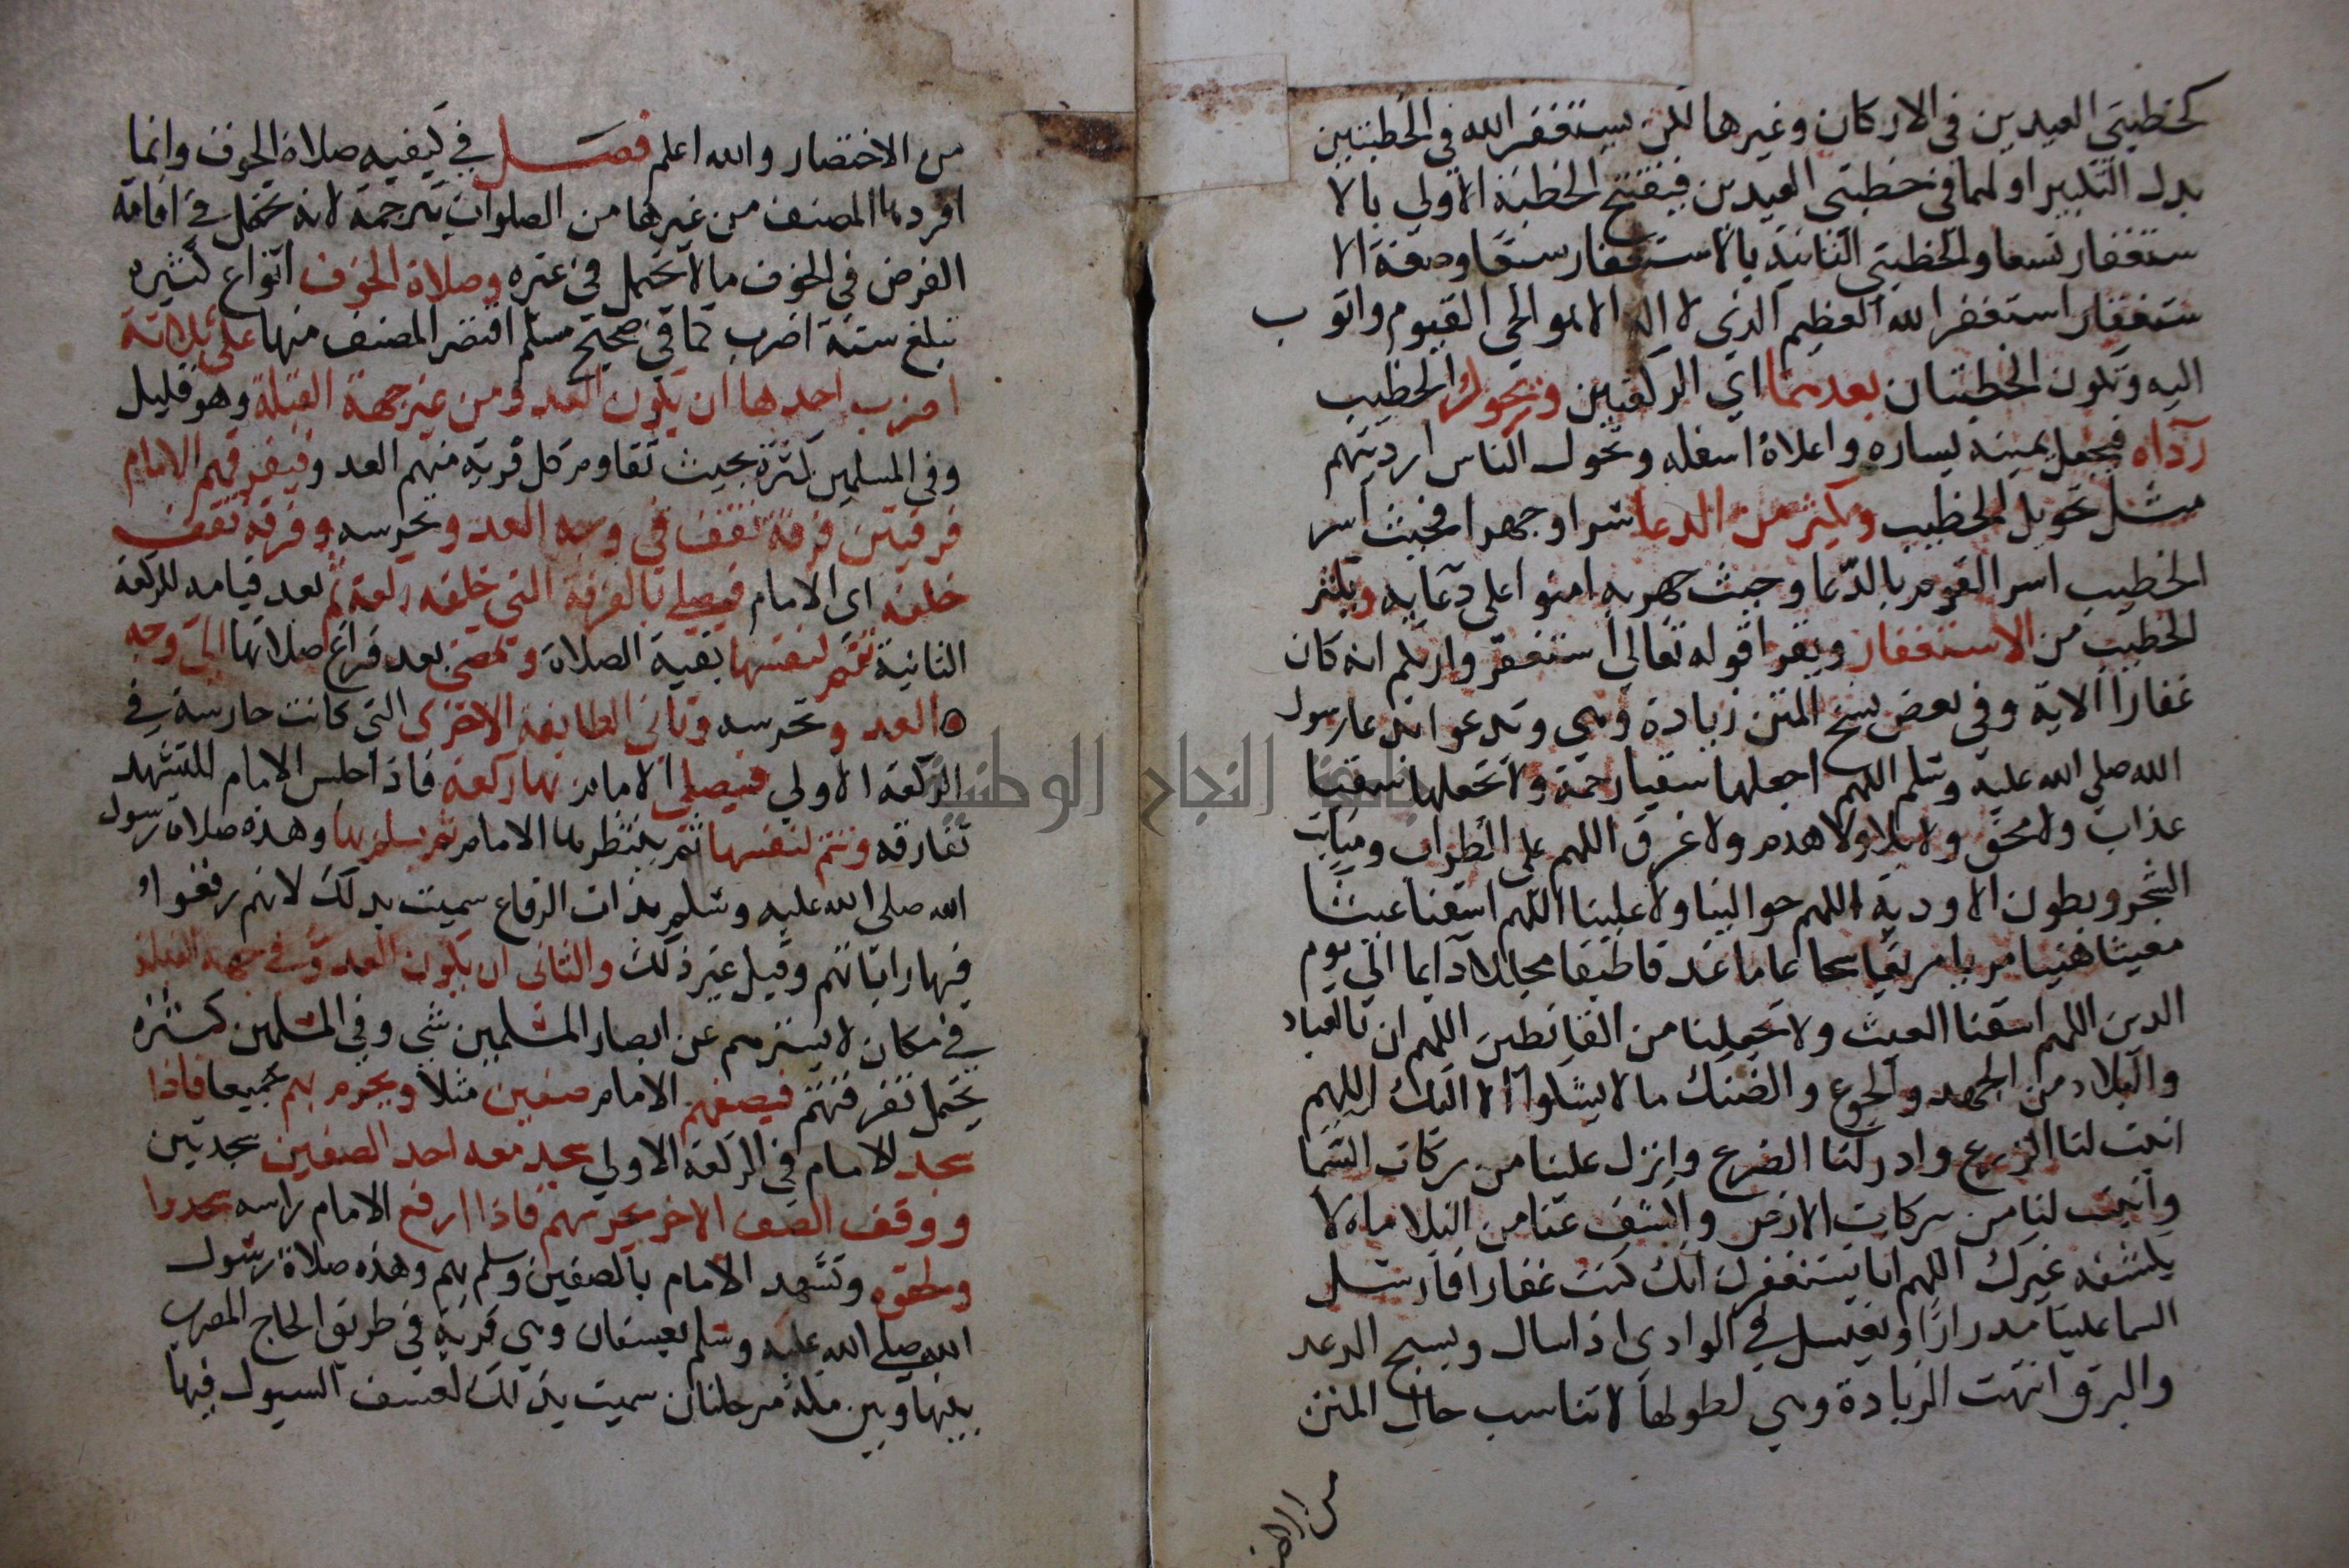 كخطيتي العيدين في الاركان وغيرها لكن يستغفر الله في الخطبتين
بدل التكبير اولهما في خطبتي العيدين فيفتتح الخطبة الاولي بالا
ستغفار تسعا والخطبتي الثانية بالاستغفار سبعا وصفة الا
ستغفار استغفر الله العظيم الذي لا اله الا هو الحي القيوم واتوب
اليه وتكون الخطبتان بعدهما اي الركعتين ويحول الخطيب
رداه فيجعل يمينه يساره واعلاه اسفله وتحول الناس ارديتهم
مثل تحويل الخطيب ويكثر من الدعا سرا وجهرا فحيث اسر
الخطيب اسر القوم بالدعا وحيث جهر به امنوا على دعايه ويكثر
الخطيب من الاستغفار ويقرا قوله تعالي استغفروا ربكم انه كان
غفارا الاية وفي بعض نسخ المتن زيادة وهي ويدعوا بدعا رسول
الله صلى الله عليه وسلم اللهم اجعلها سقيا رحمة ولا تجعلها سقيا
عذاب ولا محق ولا بلا ولا هدم ولا غرق اللهم على الظراب ومنابت
الشجر وبطون الاودية اللهم حوالينا ولا علينا اللهم اسقنا غيثا
مغيثا هنيا مريا مريعا سحا عاما غدقا طبقا مجللا دايما الي يوم
الدين اللهم اسقنا الغيث ولا تجعلنا من القانطين اللهم ان بالعباد
والبلاد من الجهد والجوع والضنك ما لا يشكوا الا اليك اللهم
انبت لنا الزرع وادر لنا الضرع وانزل علينا من بركات السما
وانبت لنا من بركات الارض واكشف عنا من البلا ماه لا
يكشفه غيرك اللهم انا نستغفرك انك كنت غفارا فارسل
السما علينا مدرارا ويغتسل في الوادى اذا سال ويسبح الرعد
والبرق انتهت الزيادة وهي لطولها لا تناسب حال المتن
من الاختصار والله اعلم فصل في كيفيه صلاة الخوف وانما
افردها المصنف من غيرها من الصلوات بترجمة لانه يحتمل في اقامة
الفرض في الخوف ما لا يحتمل في غيره وصلاة الخوف انواع كثيره
تبلغ ستة اضرب كما في صحيح مسلم اقتصر المصنف منها على ثلاثة
اضرب احدها ان يكون العدو من غير جهة القبلة وهو قليل
وفي المسلمين كثرة بحيث تقاوم كل فرقة منهم العدو فيفرقهم الامام
فرقتين فرقة تقف في وجه العدو ويحرسه وفرقة تقف
خلفه اى الامام فيصلي بالفرقة التي خلفه ركعة ثم بعد قيامه للركعة
الثانية تتم لنفسها بقية الصلاة وتمضي بعد فراغ صلاتها الي وجه
ه العدو وتحرسه وتاتي الطايفة الاخرى التي كانت حارسة في
الركعة الاولي فيصلي الامام بها ركعة فاذا جلس الامام للتشهد
تفارقه وتتم لنفسها ثم ينتظرها الامام ثم يسلم بها وهذه صلاة رسول
الله صلى الله عليه وسلم بذات الرقاع سميت بذلك لانهم رقعوا
فيها راياتهم وقيل غير ذلك والثانى ان يكون العدو في جهة القبلة
في مكان لا يسترهم عن ابصار المسلمين شي وفي المسلمين كثرة
يحتمل تفرقتهم فيصفهم الامام صفين مثلا ويحرم بهم جميعا فاذا
سجد الامام في الركعة الاولي سجد معه احد الصفين سجدتين
ووقف الصف الاخر يحرسهم فاذا ارفع الامام راسه سجدوا
ولحقوه وتشهد الامام بالصفين وسلم بهم وهذه صلاة رسول
الله صلى الله عليه وسلم بعسفان وهي قرية في طريق الحاج المصري
بينها وبين مكة مرحلتان سميت بذلك لعسف السيول فيها
جامعة النجاح الوطنية